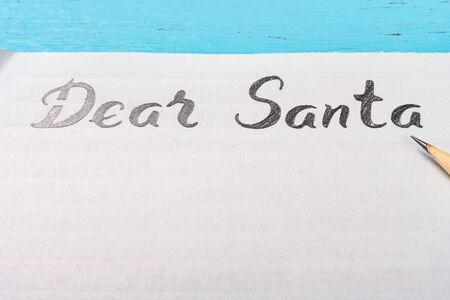 Dear Santa